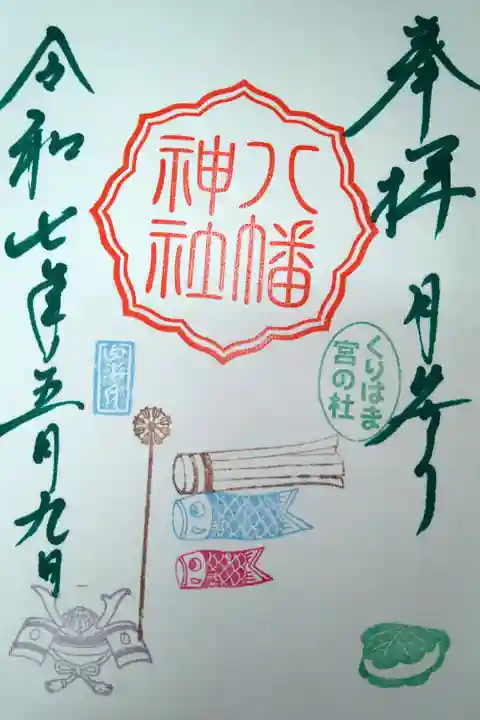 奉拝 月参り
八幡
神社
くりはま
宮の杜
令和七年五月九日